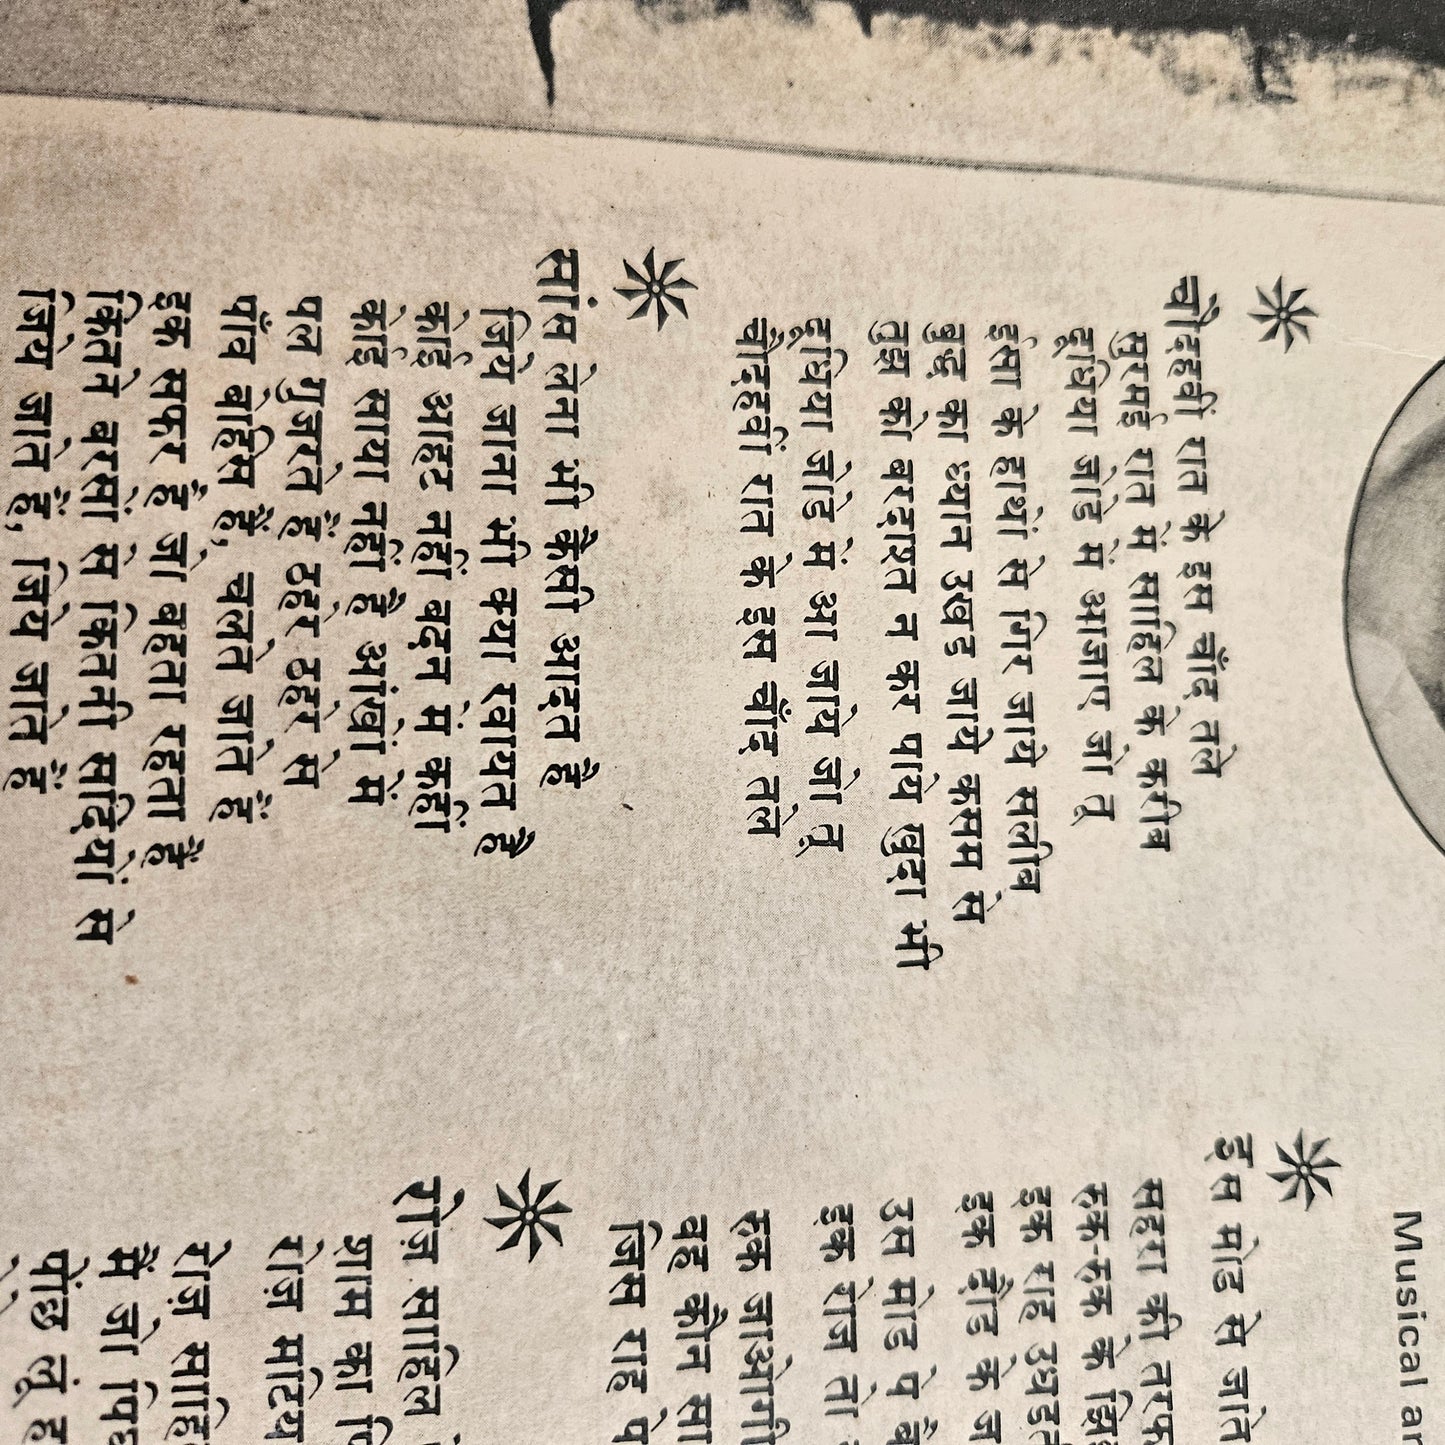 चौदहवीं रात के इस चाँद तले
सुरमई रात में साहिल के क़रीब
दूधिया जोड़े में आजाए जो तू
ईसा के हाथों से गिर जाये सलीब
बुद्ध का ध्यान उखड़ जाये कसम से
तुझ को बरदाश्त न कर पाये खुदा भी
दूधिया जोड़े में आ जाये जो तू
चौदहवीं रात के इस चाँद तले
सांस लेना भी कैसी आदत है
जिये जाना भी क्या रवायत है
कोई आहट नहीं बदन में कहीं
कोई साया नहीं है आंखों में
पाँव बेहिस हैं, चलते जाते हैं
इक सफर है जो बहता रहता है
कितने बरसों से कितनी सदियों से
जिये जाते हैं, जिये जाते हैं
Musical
इस मोड़ से जाते
सहरा की तरफ
रुक-रुक के
इक राह उधड़ती
इक दौड़ के
उस मोड़ पे
इक रोज तो
रुक जाओगी
वह कौन सा
जिस राह पे
रोज़ साहिल
शाम का
रोज़
रोज़
मैं जो
पोंछ लूं